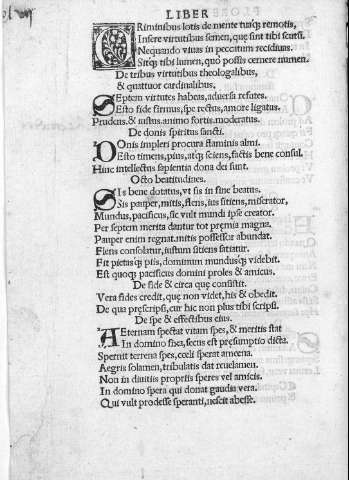 LIBER
CRiminibus lotis de mente tuaq; remotis,
Insere virtutibus semen, quę sint tibi scutsi.
Nequando viuas in peccatum recidiuus.
Sitq; tibi lumen, quo possis cernere numen.
De tribus virtutibus theologalibus,
& quattuor cardinalibus.
SEptem virtutes habeas, aduersa refutes.
Esto fide firmus, spe rectus, amore ligatus.
Prudens, & iustus, animo fortis, moderatus.
De donis spiritus sancti.
DOnis impleri procura flaminis almi.
Esto timens, pius, atq; sciens, factis bene consul.
Hinc intellectus sapientia dona dei sunt.
Octo beatitudines.
SIs bene dotatus, vt sis in fine beatus.
Sis pauper, mitis, flens, ius sitiens, miserator,
Mundus, pacificus, sic vult mundi ipse creator.
Per septem merita dantur tot pręmia magna.
Pauper enim regnat, mitis possessor abundat.
Flens consolatur, iustum sitiens satiatur.
Fit pietasq; piis, dominum mundusq; videbit.
Est quoq; pacificus domini proles & amicus.
De fide & circa que consistit.
Vera fides credit, quę non videt, his & obedit.
De qua pręscripsi, cur hic non plus tibi scripsi.
De spe & effectibus eius.
AEternam spectat vitam spes, & meritis stat
In domino fixa, secus est presumptio dicta.
Spernit terrena spes, cœli sperat amœna.
Aegris solamen, tribulatis dat reuelamen.
Non in diuitiis propriis speres vel amicis.
In domino spera qui donat gaudia vera.
Qui vult prodesse speranti, nescit abesse.